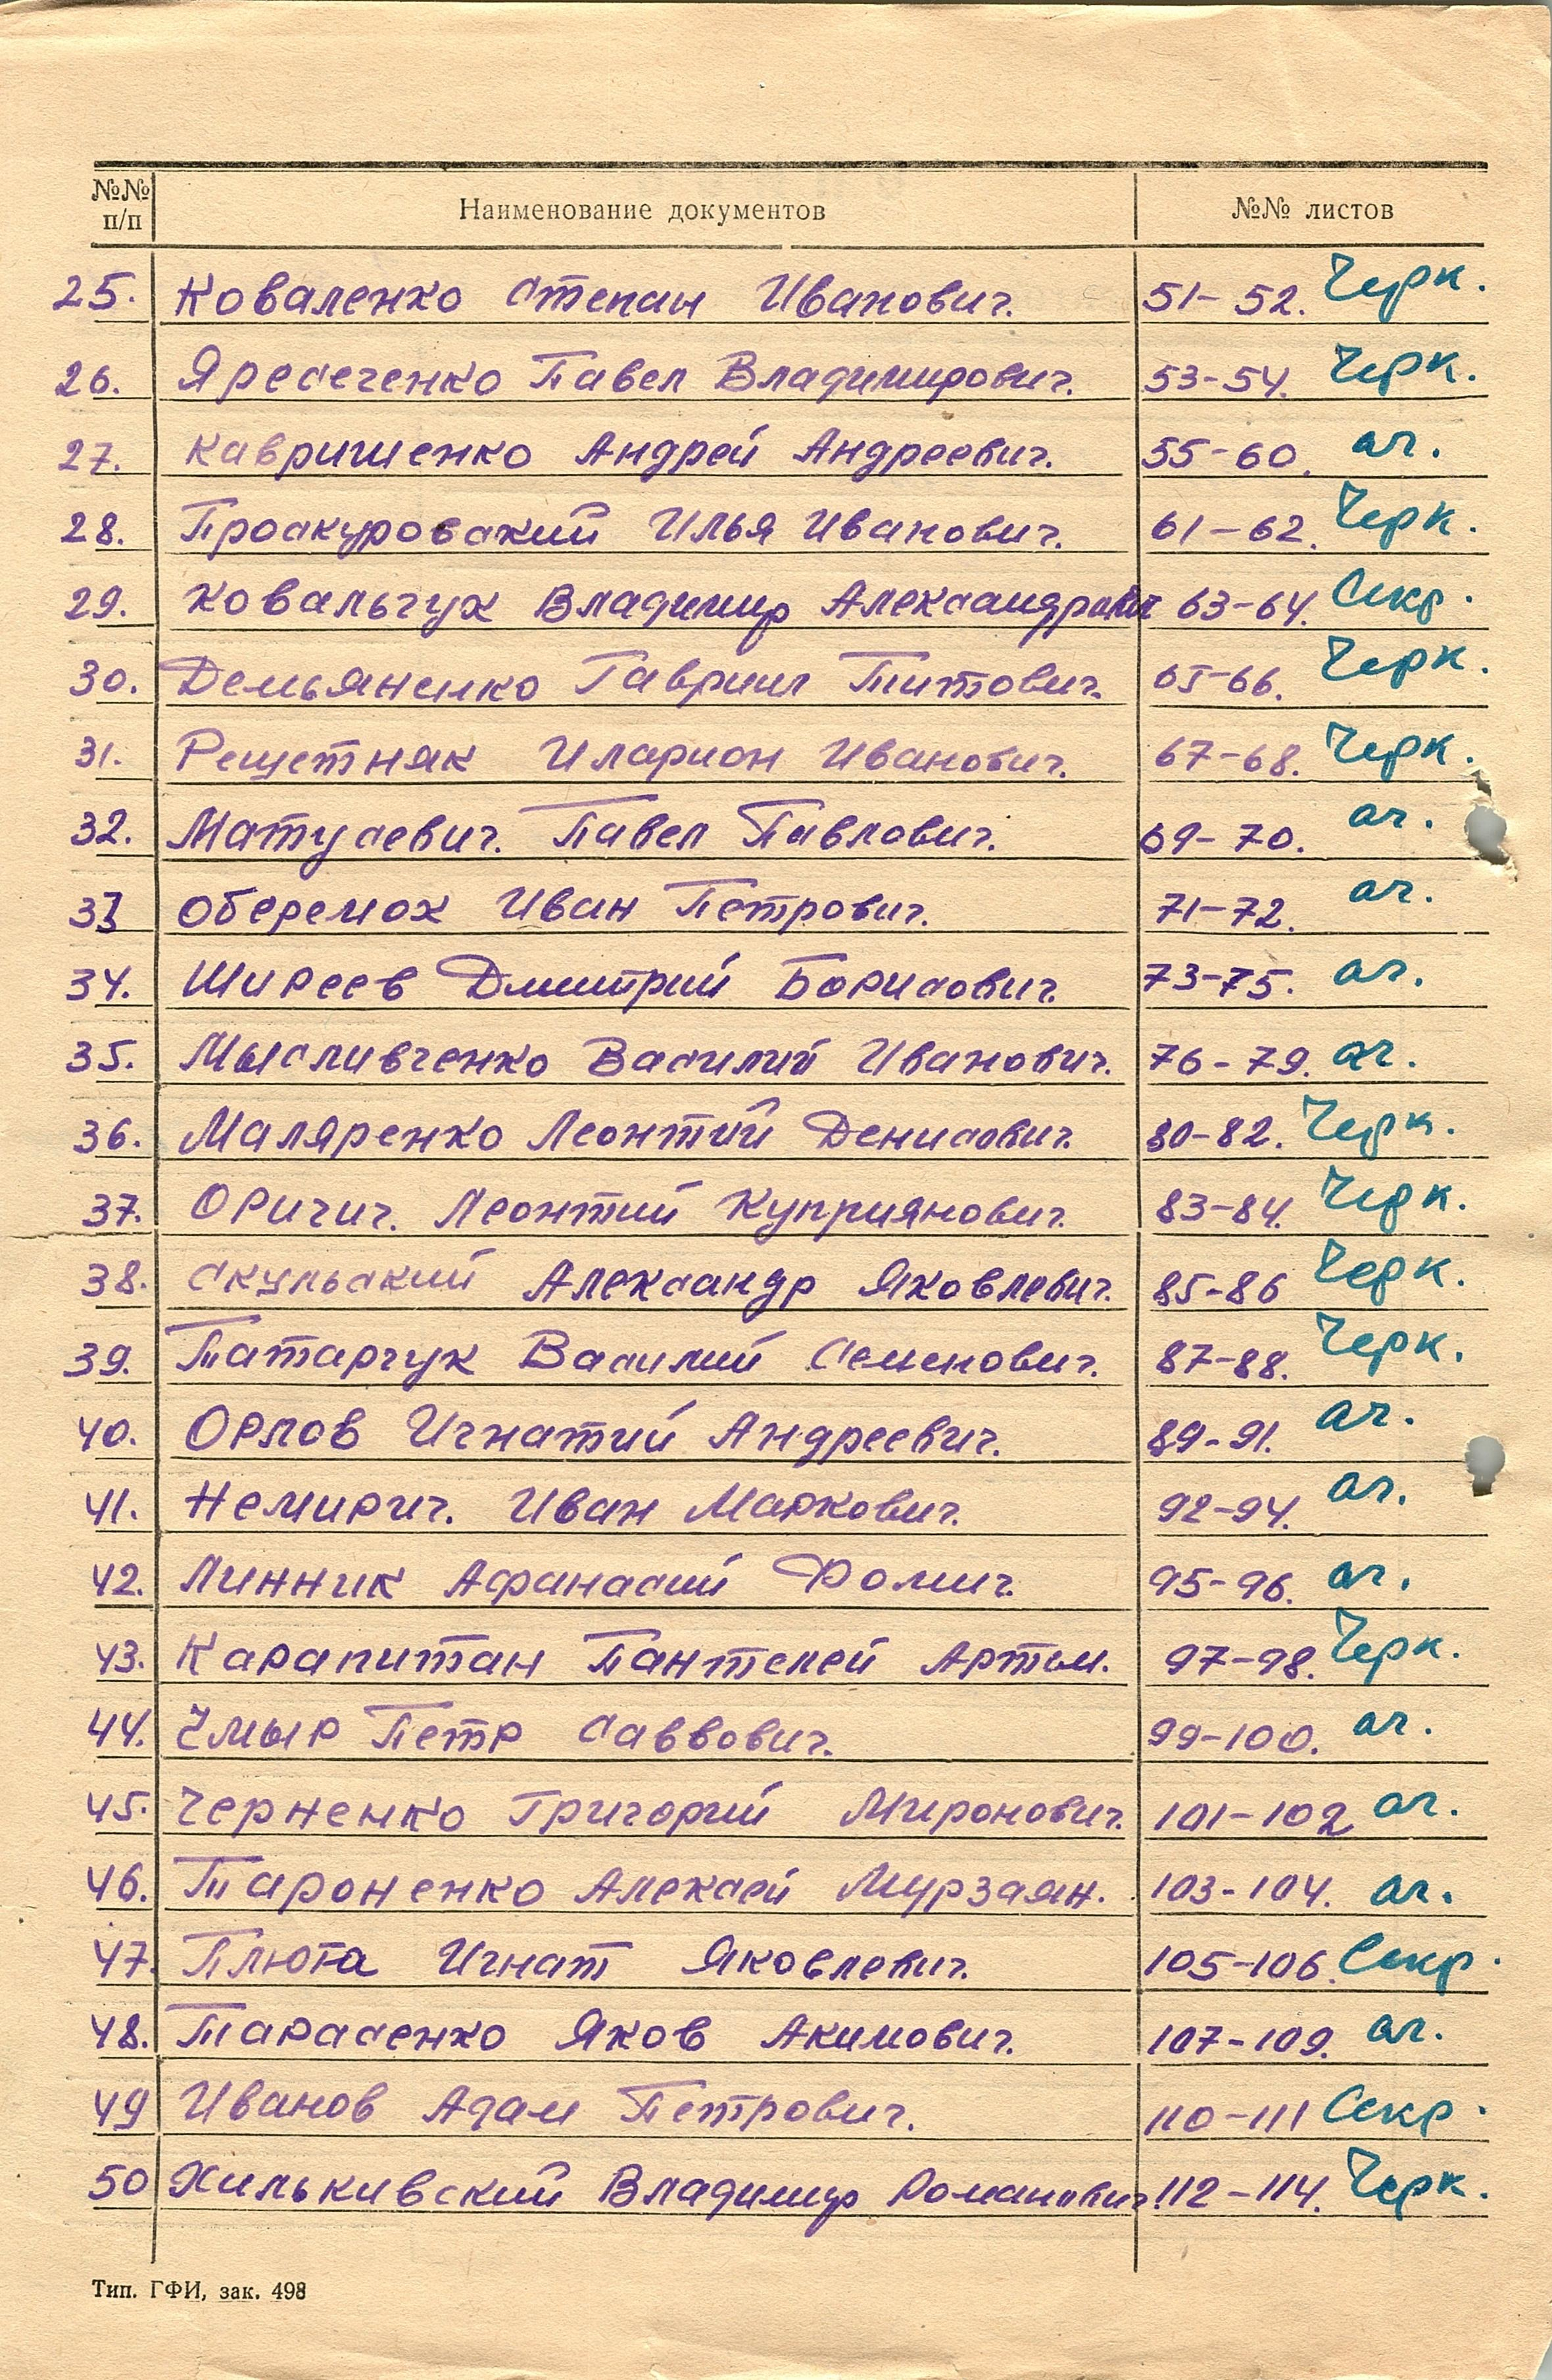 №№ п/п Наименование документов №№ листов
25. Коваленко Степан Иванович. 51-52. Черк.
26. Яресеченко Павел Владимирович. 53-54. Черк.
27. Кавришенко Андрей Андреевич. 55-60. ог.
28. Проскуровский Илья Иванович. 61-62. Черк.
29. Ковальчук Владимир Александрович 63-64. Секр.
30. Демьяненко Гавриил Титович. 65-66. Черк.
31. Решетняк Иларион Иванович. 67-68. Черк.
32. Матусевич. Павел Павлович. 69-70. ог.
33 Оберемок Иван Петрович. 71-72. ог.
34. Ширеев Дмитрий Борисович. 73-75. ог.
35. Мысливченко Василий Иванович. 76-79. ог.
36. Маляренко Леонтий Денисович. 80-82. Черк.
37. Оричич. Леонтий Куприянович. 83-84. Черк.
38. Скульский Александр Яковлевич. 85-86 Черк.
39. Татарчук Василий Семенович. 87-88. Черк.
40. Орлов Игнатий Андреевич. 89-91. ог.
41. Немирич. Иван Маркович. 92-94. ог.
42. Линник Афанасий Фомич. 95-96. ог.
43. Карапитан Пантелей Артем. 97-98. Черк.
44. Чмыр Петр Саввович. 99-100. ог.
45. Черненко Григорий Миронович. 101-102 ог.
46. Тароненко Алексей Мурзаян. 103-104. ог.
47. Плюта Игнат Яковлевич. 105-106. Секр.
48. Тарасенко Яков Акимович. 107-109. ог.
49 Иванов Адам Петрович. 110-111 Секр.
50 Хилькивский Владимир Романович. 112-114. Черк.
Тип. ГФИ, зак. 498